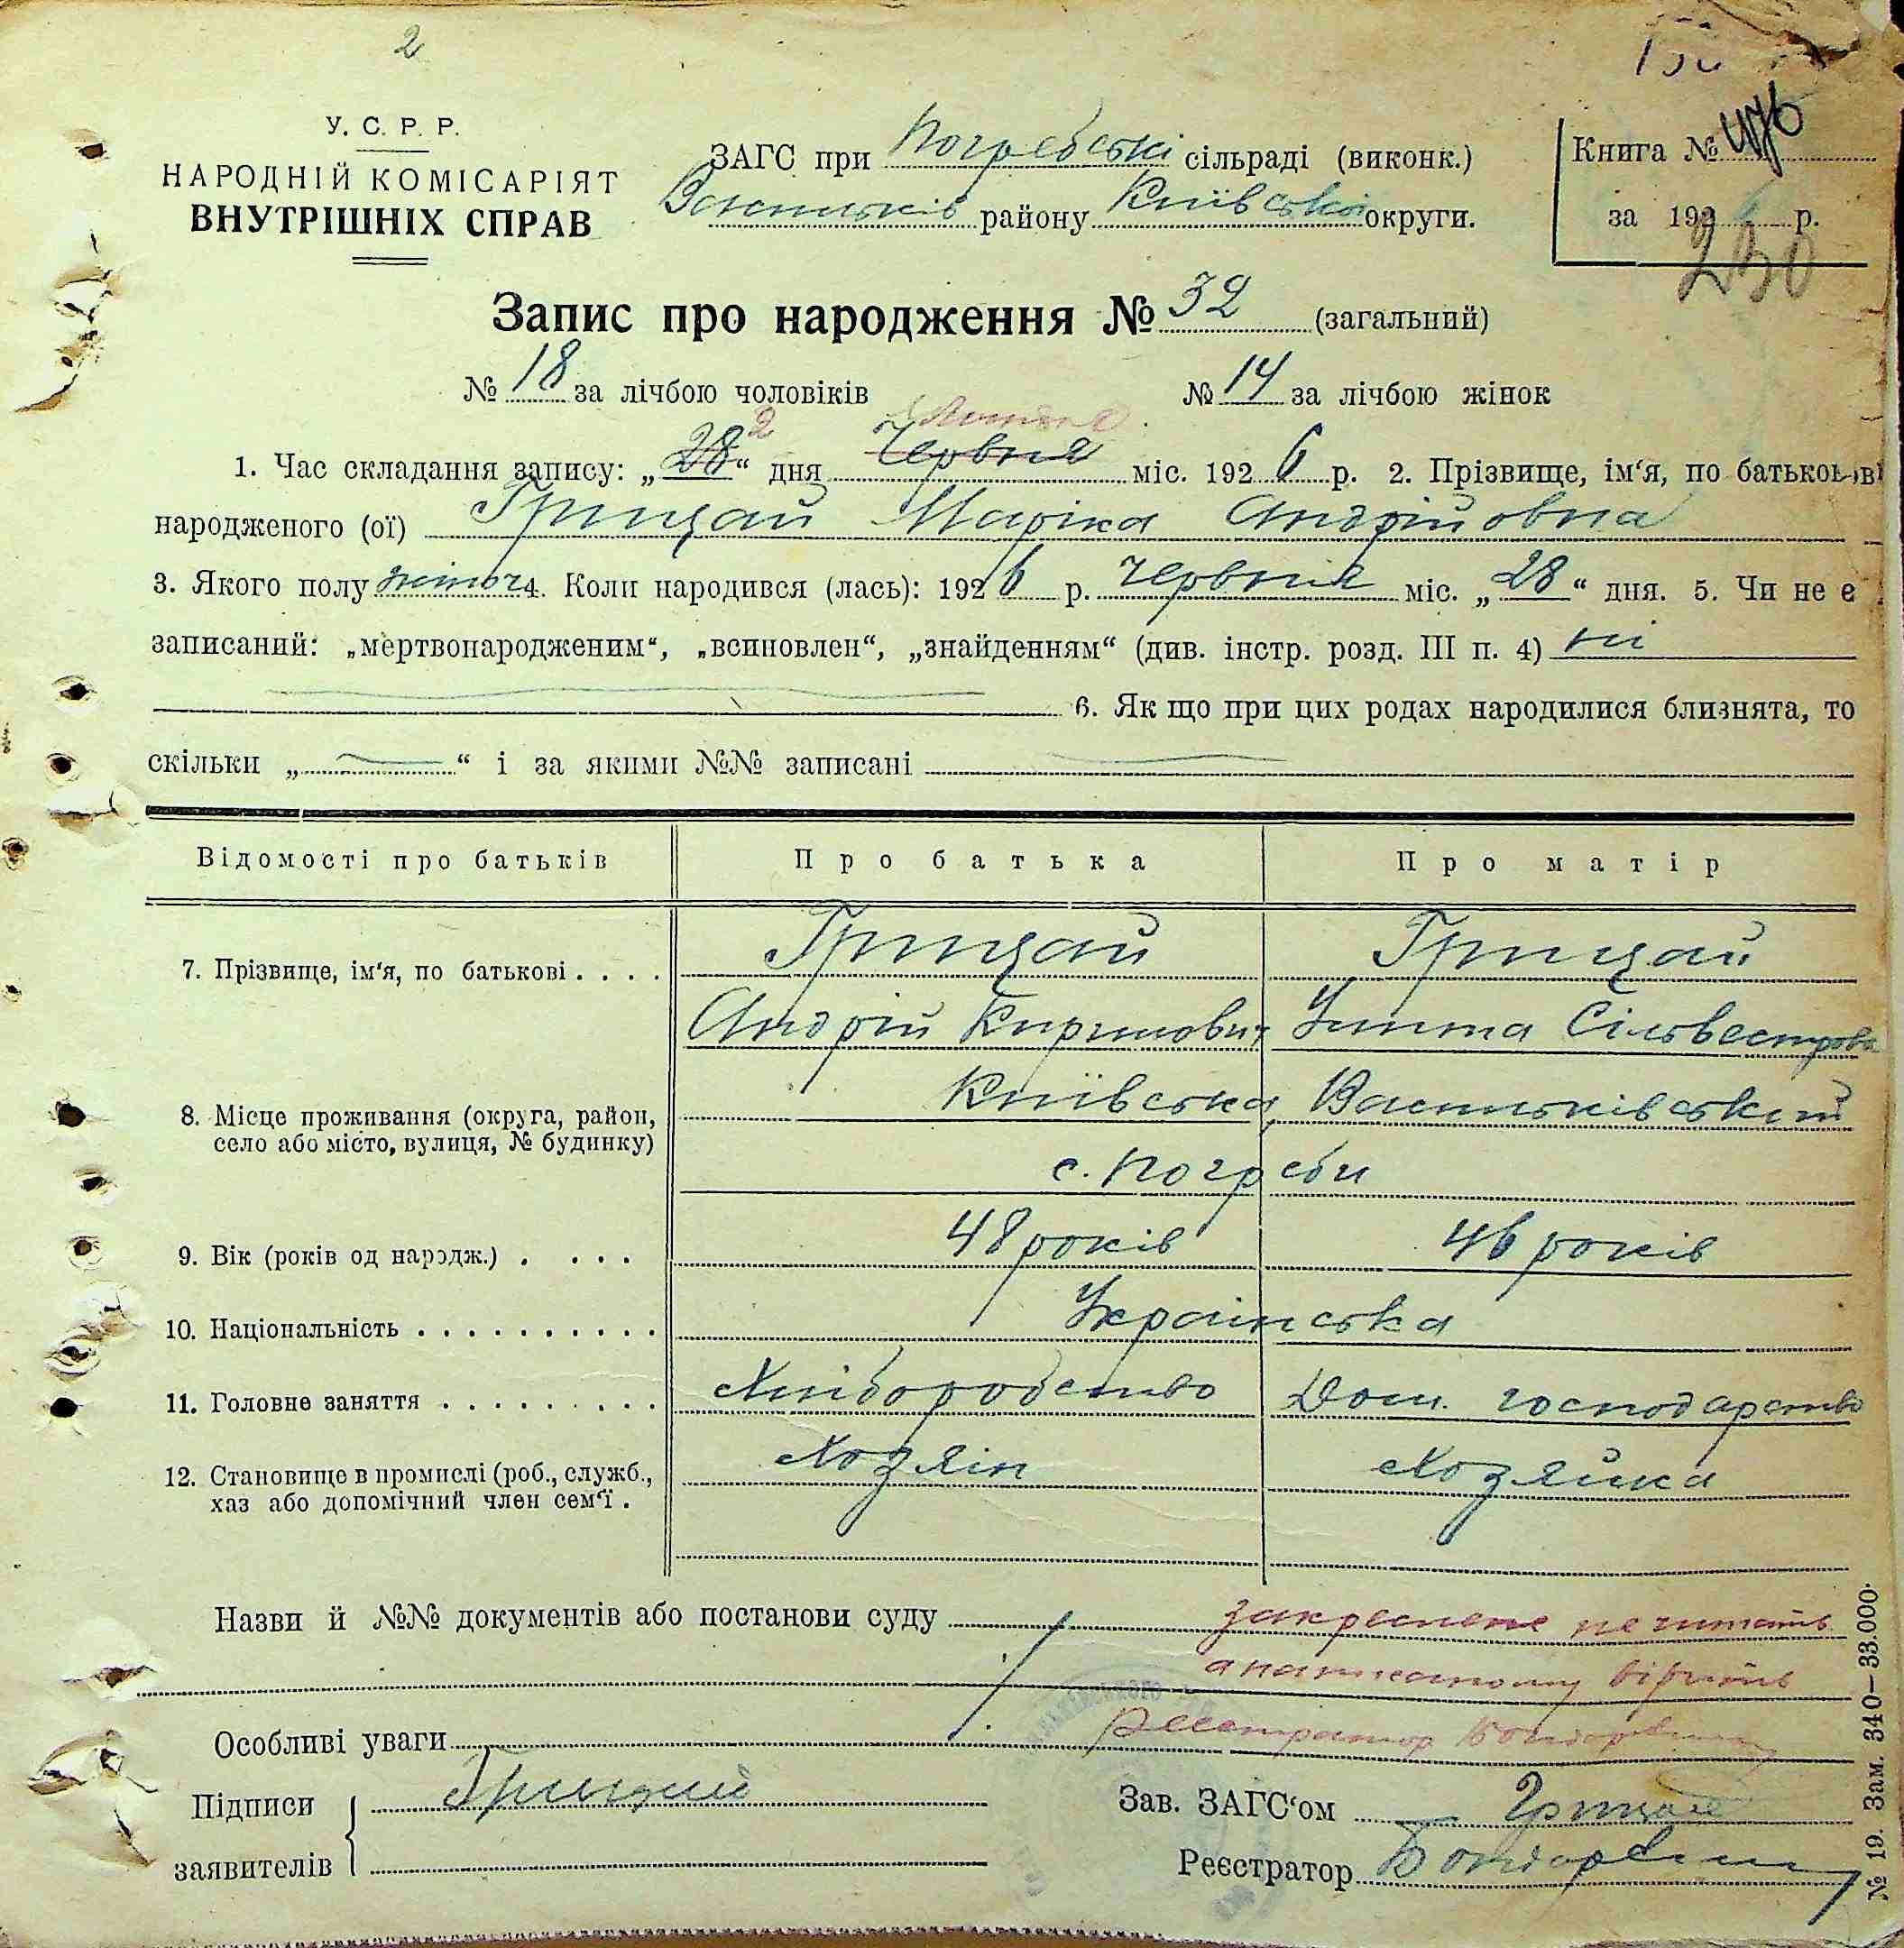 2
У. С. Р. Р.
НАРОДНІЙ КОМІСАРІЯТ
ВНУТРІШНІХ СПРАВ
ЗАГС при Погребські сільраді (виконк.)
Васильків району Київської округи.
Книга № 476
за 1926 р.
230
Запис про народження № 32 (загальний)
№ 18 за лічбою чоловіків № 14 за лічбою жінок
2 Липня
1. Час складання запису: „28“ дня Червня міс. 1926 р. 2. Прізвище, ім‘я, по батькові
народженого (ої) Грицай Маріка Андрійовна
3. Якого полу жіноч 4. Коли народився (лась): 1926 р. Червня міс. „28“ дня. 5. Чи не є
записаний: „мертвонародженим“, „всиновлен“, „знайденням“ (див. інстр. розд. III п. 4) ні
6. Як що при цих родах народилися близнята, то
скільки „ “ і за якими №№ записані
Відомості про батьків Про батька Про матір
7. Прізвище, ім‘я, по батькові . . . . Грицай Грицай
Андрій Кирилович Улита Сільвестрова
8. Місце проживання (округа, район, Київська Васильківський
село або місто, вулиця, № будинку)
с. Погреби
9. Вік (років од народж.) . . . . 48 років 46 років
10. Національність . . . . . . . . . . Українська
11. Головне заняття . . . . . . . . . Хліборобство Дом. господарство
12. Становище в промислі (роб., служб., Хозяін Хозяйка
хаз або допомічний член сем‘ї .
Назви й №№ документів або постанови суду закреслене не читать
а написаному вірить
Особливі уваги Реестратор Бондар
Підписи Грицай Зав. ЗАГС‘ом Грицай
заявителів Реєстратор
№ 19. Зам. 340—33.000.